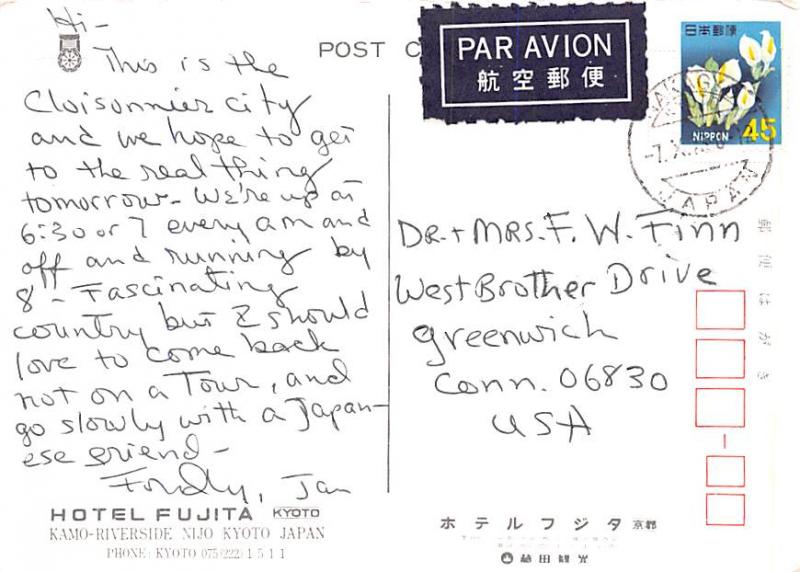 Hi-
This is the
Cloisonnier city
and we hope to get
to the real thing
tomorrow- We're up at
6:30 or 7 every am and
off and running by
8 - Fascinating
country but I should
love to come back
not on a Tour, and
go slowly with a Japan-
ese friend -
Fondly, Jan
HOTEL FUJITA KYOTO
KAMO-RIVERSIDE NIJO KYOTO JAPAN
PHONE: KYOTO 075(222)1511
POST C
PAR AVION
航空郵便
日本郵便
NIPPON 45
JAPAN
DR. + MRS. F. W. Finn
West Brother Drive
Greenwich
Conn. 06830
USA
郵便はがき
ホテルフジタ 京都
藤田観光